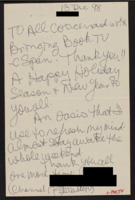 13 Dec 98
TO All concerned with
Bringing Book TV
C Span. Thank you!!
A Happy Holiday
Season & New Year to
you all
An Oasis that I
use to refresh my mind.
Almost stay awake the
whole weekend
Thank you all
one more
(Channel